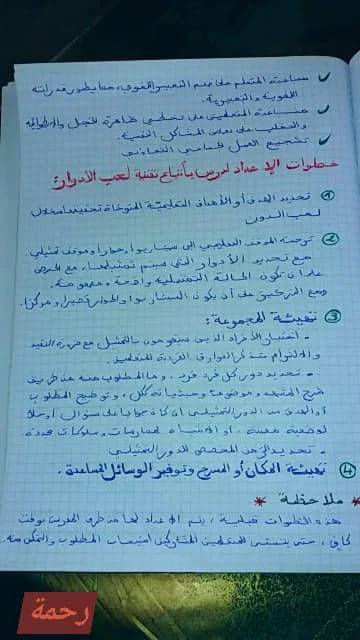 ✓ مساعدة المتعلم على فهم التعبير اللغوي، مما يطور قدراته
اللغوية والتعبيرية.
✓ مساعدة المتعلمين على تخطي ظاهرة الخجل والانطوائية
والتغلب على بعض المشاكل النفسية.
✓ تشجيع العمل الجماعي التعاوني
خطوات الإعداد لدرس باتباع تقنية لعب الأدوار:
① تحديد الهدف أو الأهداف التعليمية المتوخاة تحقيقها من خلال
لعب الدور
② ترجمة الموقف التعليمي إلى سيناريو أو حوار أو موقف تمثيلي.
مع تحديد الأدوار التي سيتم تمثيلها، مع الحرص
على أن تكون الحالة التمثيلية واضحة ومفهومة.
ومع التركيز على أن يكون السيناريو والحوار قصيرا ومركزا.
③ تهيئة المجموعة:
- اختيار الأفراد الذين سيقومون بالتمثيل مع ضرورة التقيد
والالتزام بتذكر الفوارق الفردية للمتعلمين.
- تحديد دور كل فرد فرد، وما المطلوب منه عن طريق
شرح المشهد وموضوعه وحيثياته ككل، وتوضيح المطلوب
أو الهدف من الدور التمثيلي إن كان جوابا على سؤال أو حلا
لوضعية معينة، أو الانتباه لمعلومات وسلوكات محددة.
- تحديد الزمن المخصص للدور التمثيلي
④ تهيئة المكان أو المسرح وتوفير الوسائل المساعدة.
* ملاحظة *
هذه الخطوات قبلية، يتم الإعداد لها من طرف المدرس بوقت
كافي، حتى يتسنى للمتعلمين المشاركين استيعاب المطلوب والتمكن منه.
رحمة